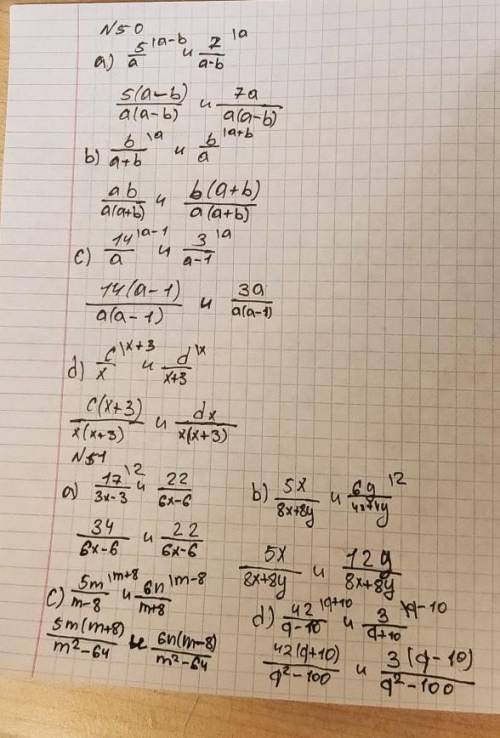 N50
a) 5/a |a-b и 7/a-b |a
5(a-b)/a(a-b) и 7a/a(a-b)
b) b/a+b |a и b/a |a+b
ab/a(a+b) и b(a+b)/a(a+b)
c) 14/a |a-1 и 3/a-1 |a
14(a-1)/a(a-1) и 3a/a(a-1)
d) c/x |x+3 и d/x+3 |x
c(x+3)/x(x+3) и dx/x(x+3)
N51
a) 17/3x-3 |2 и 22/6x-6
34/6x-6 и 22/6x-6
b) 5x/8x+8y и 6y/4x+4y |2
5x/8x+8y и 12y/8x+8y
c) 5m/m-8 |m+8 и 6n/m+8 |m-8
5m(m+8)/m²-64 и 6n(m-8)/m²-64
d) 42/q-10 |q+10 и 3/q+10 |q-10
42(q+10)/q²-100 и 3(q-10)/q²-100